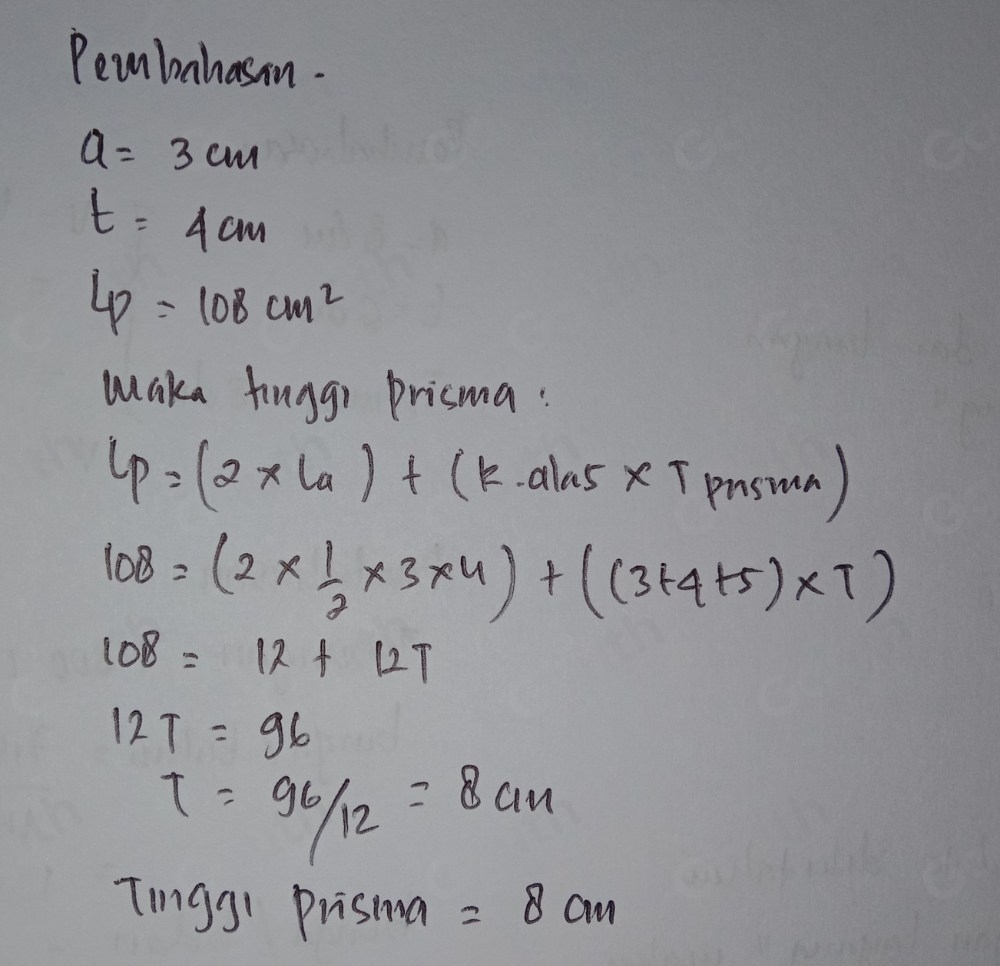 Pembahasan -
a = 3 cm
t = 4 cm
Lp = 108 cm²
Maka tinggi prisma :
Lp = (2 x La) + (k.alas x T prisma)
108 = (2 x 1/2 x 3 x 4) + ((3+4+5) x T)
108 = 12 + 12T
12T = 96
T = 96/12 = 8 cm
Tinggi prisma = 8 cm